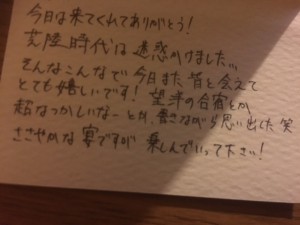 今日は来てくれてありがとう!
先陸時代は迷惑かけました…
そんなこんなで今日また皆と会えて
とても嬉しいです! 望洋の合宿とか
超なつかしいなーとか、書きながら思い出した 笑
ささやかな宴ですが 楽しんでいって下さい!